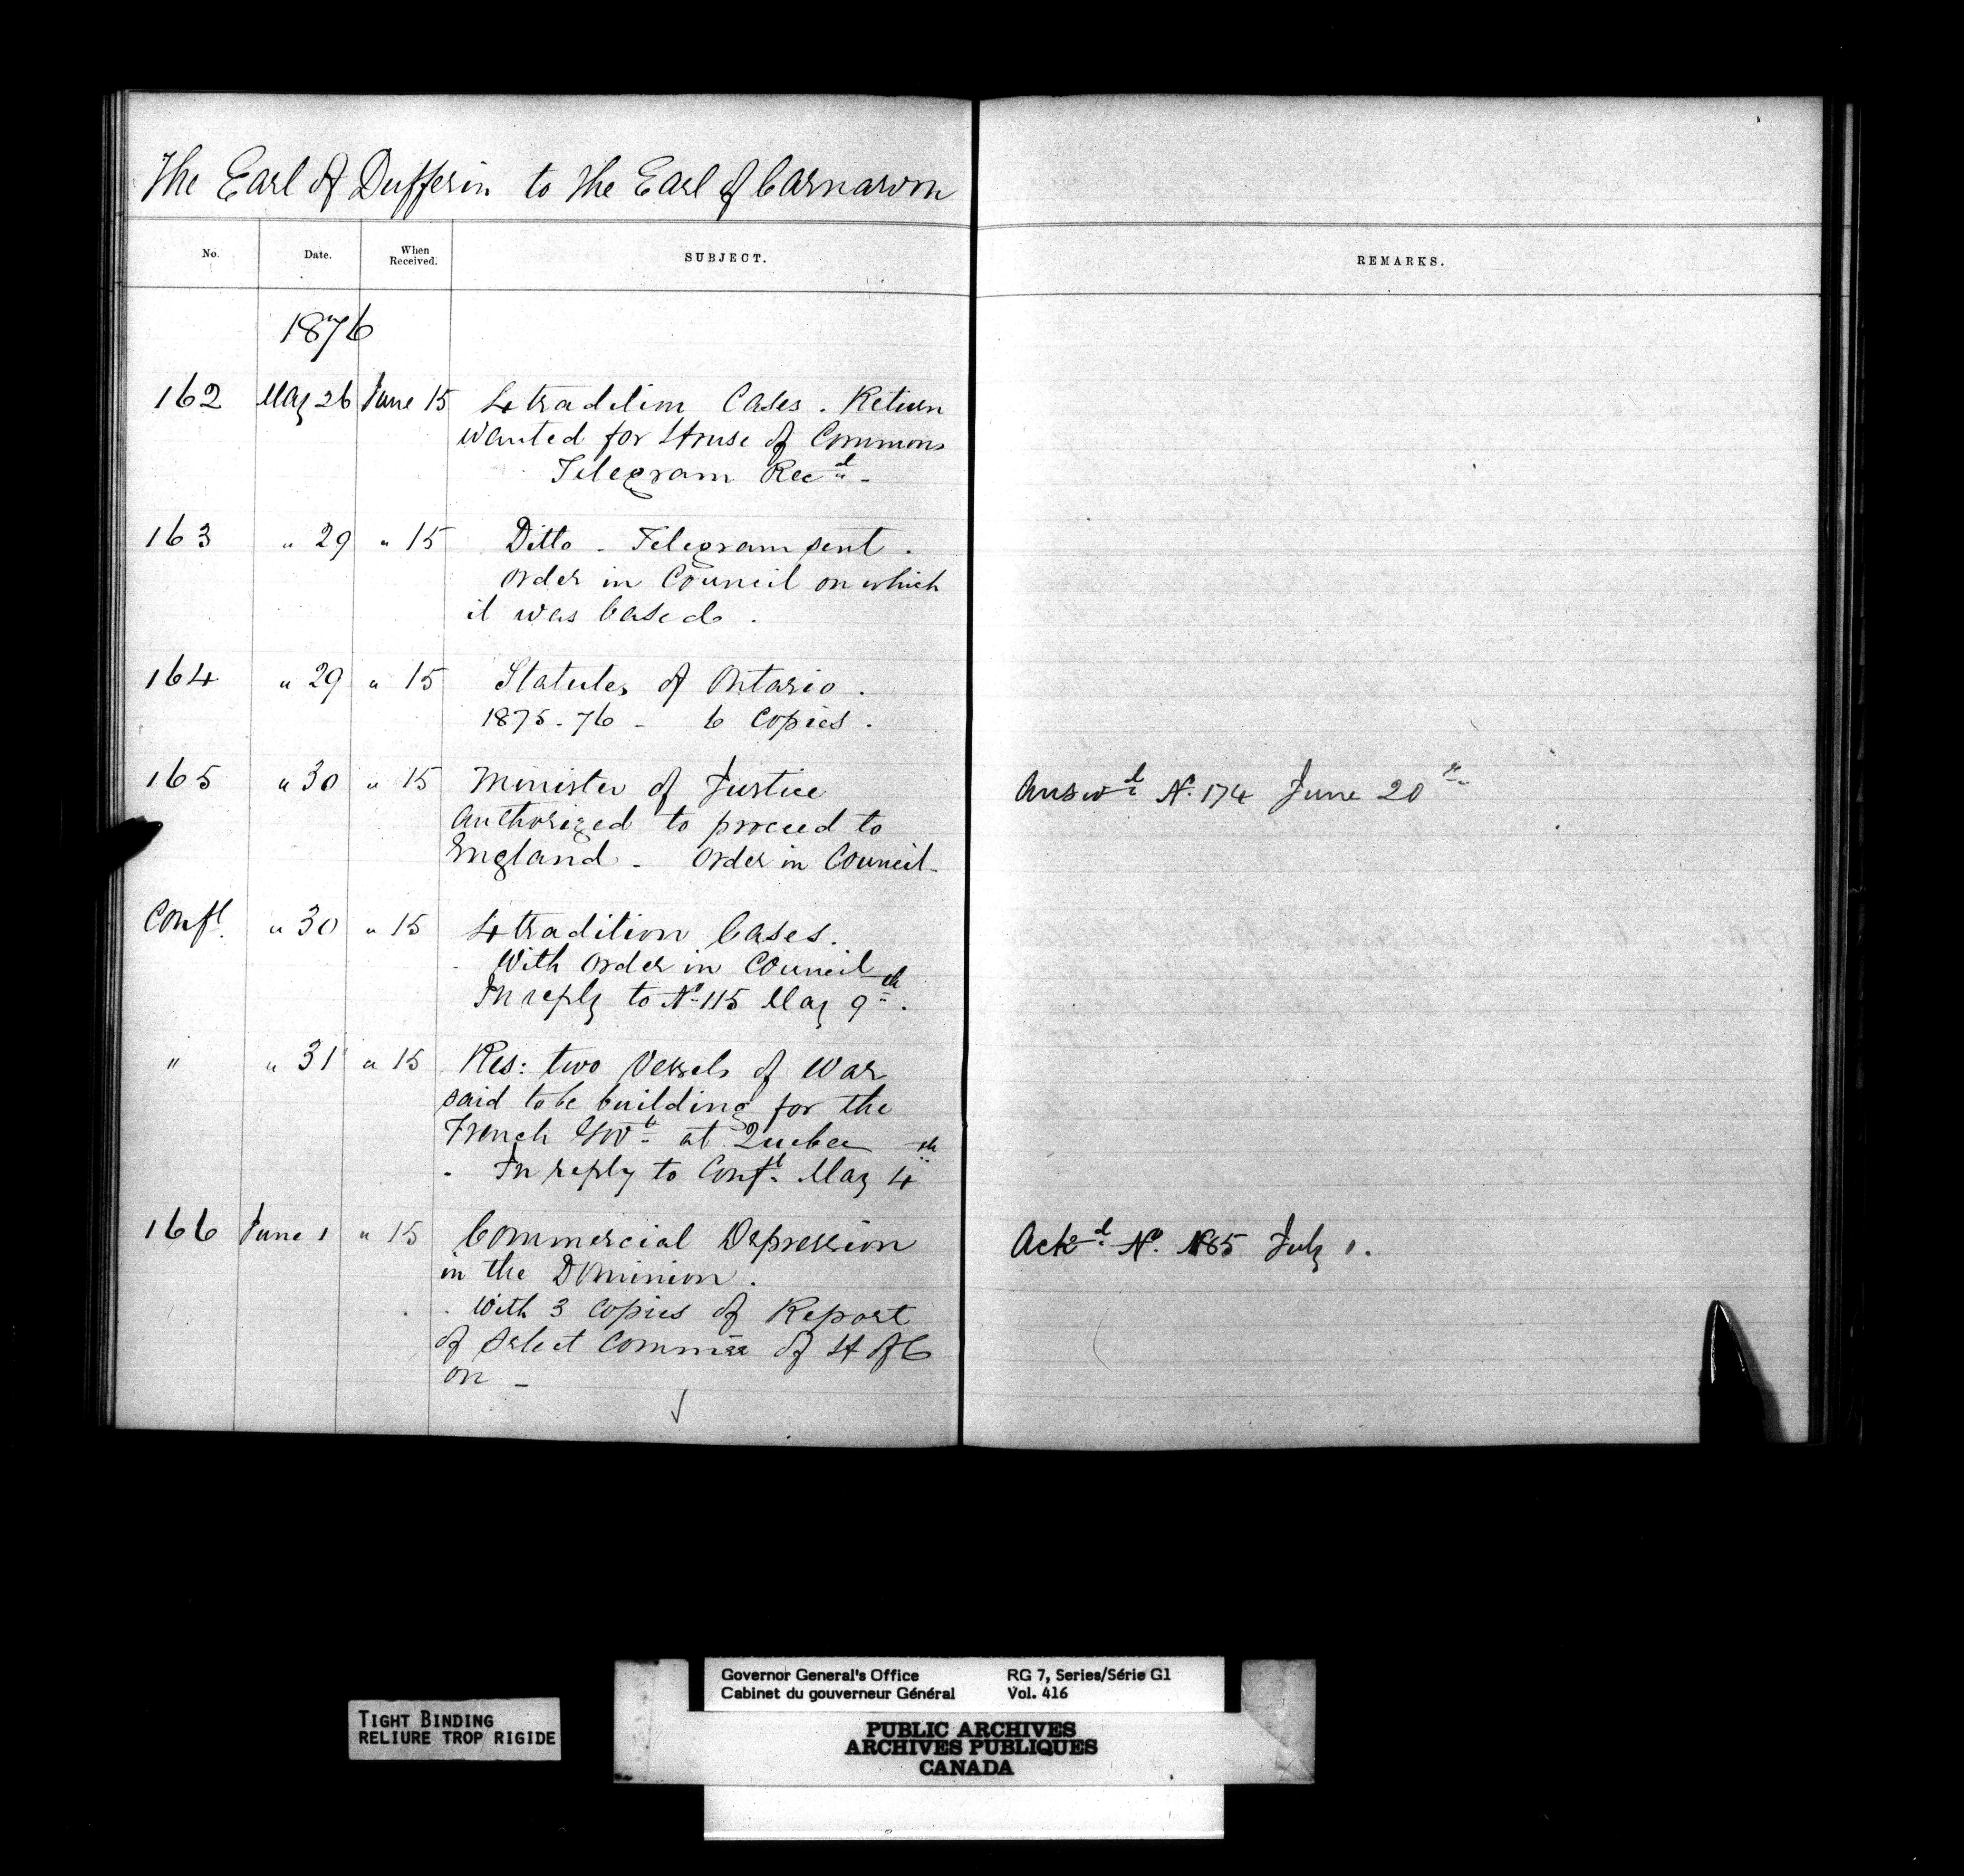 The Earl of Dufferin to the Earl of Carnarvon
No. Date. When Received. SUBJECT. REMARKS.
1876
162 May 26 June 15 Extradition Cases. Return
wanted for House of Commons
Telegram Recd -
163 " 29 " 15 Ditto - Telegram sent.
Order in Council on which
it was based.
164 " 29 " 15 Statutes of Ontario.
1875-76 - 6 Copies.
165 " 30 " 15 Minister of Justice Answd No. 174 June 20th
authorized to proceed to
England - Order in Council -
Confl. " 30 " 15 Extradition Cases.
With Order in Council
In reply to No 115 May 9th.
" " 31 " 15 Res: two Vessels of War
said to be building for the
French Govt at Quebec
- In reply to Confl. May 4th
166 June 1 " 15 Commercial Depression Ackd No. 185 July 1.
in the Dominion.
With 3 copies of Report
of Select Commee of H of C
on -
Governor General's Office RG 7, Series/Série G1
Cabinet du gouverneur Général Vol. 416
TIGHT BINDING
RELIURE TROP RIGIDE
PUBLIC ARCHIVES
ARCHIVES PUBLIQUES
CANADA